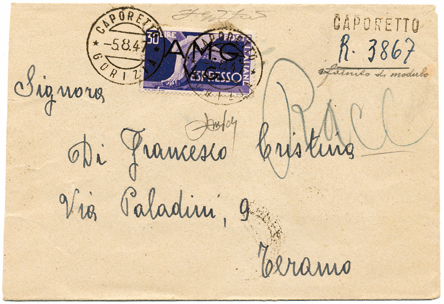 CAPORETTO
-5.8.47
GORIZIA
30
A.M.G.
ESPRESSO
CAPORETTO
R. 3867
sfornito di modulo
Racc
Signora
Di Francesco Cristina
Via Paladini, 9
Teramo